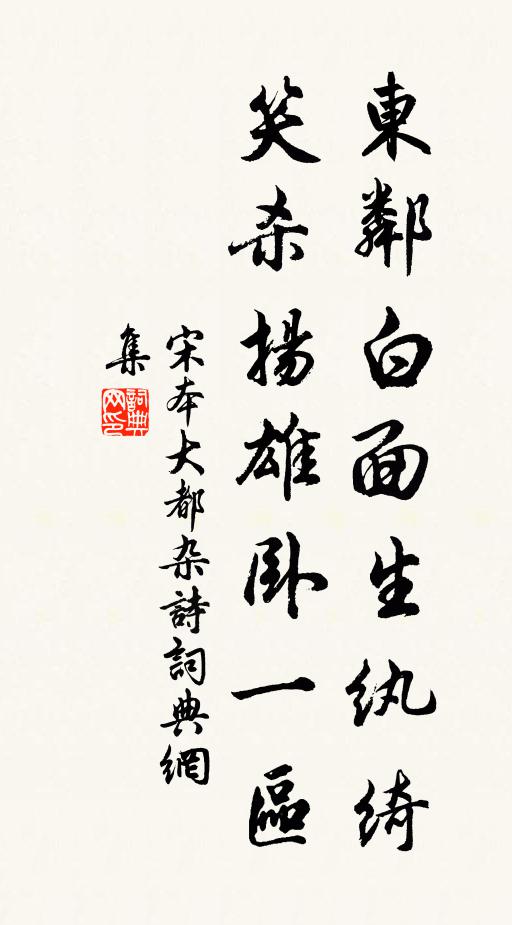 東鄰白面生紈綺
笑杀揚雄卧一區
宋本大都杂詩詞典網
集
詞典
网印